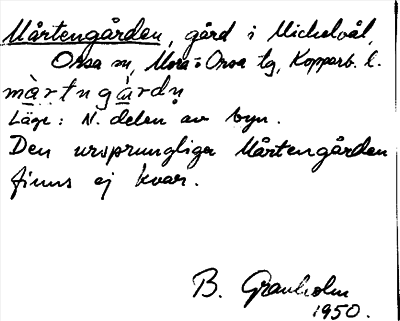 Mårtengården, gård i Mickelvål,
Orsa sn, Mora o Orsa tg, Kopparb. l.
màrtn gàrdn̥
Läge: N. delen av byn.
Den ursprungliga Mårtengården
finns ej kvar.
B. Granholm
1950.